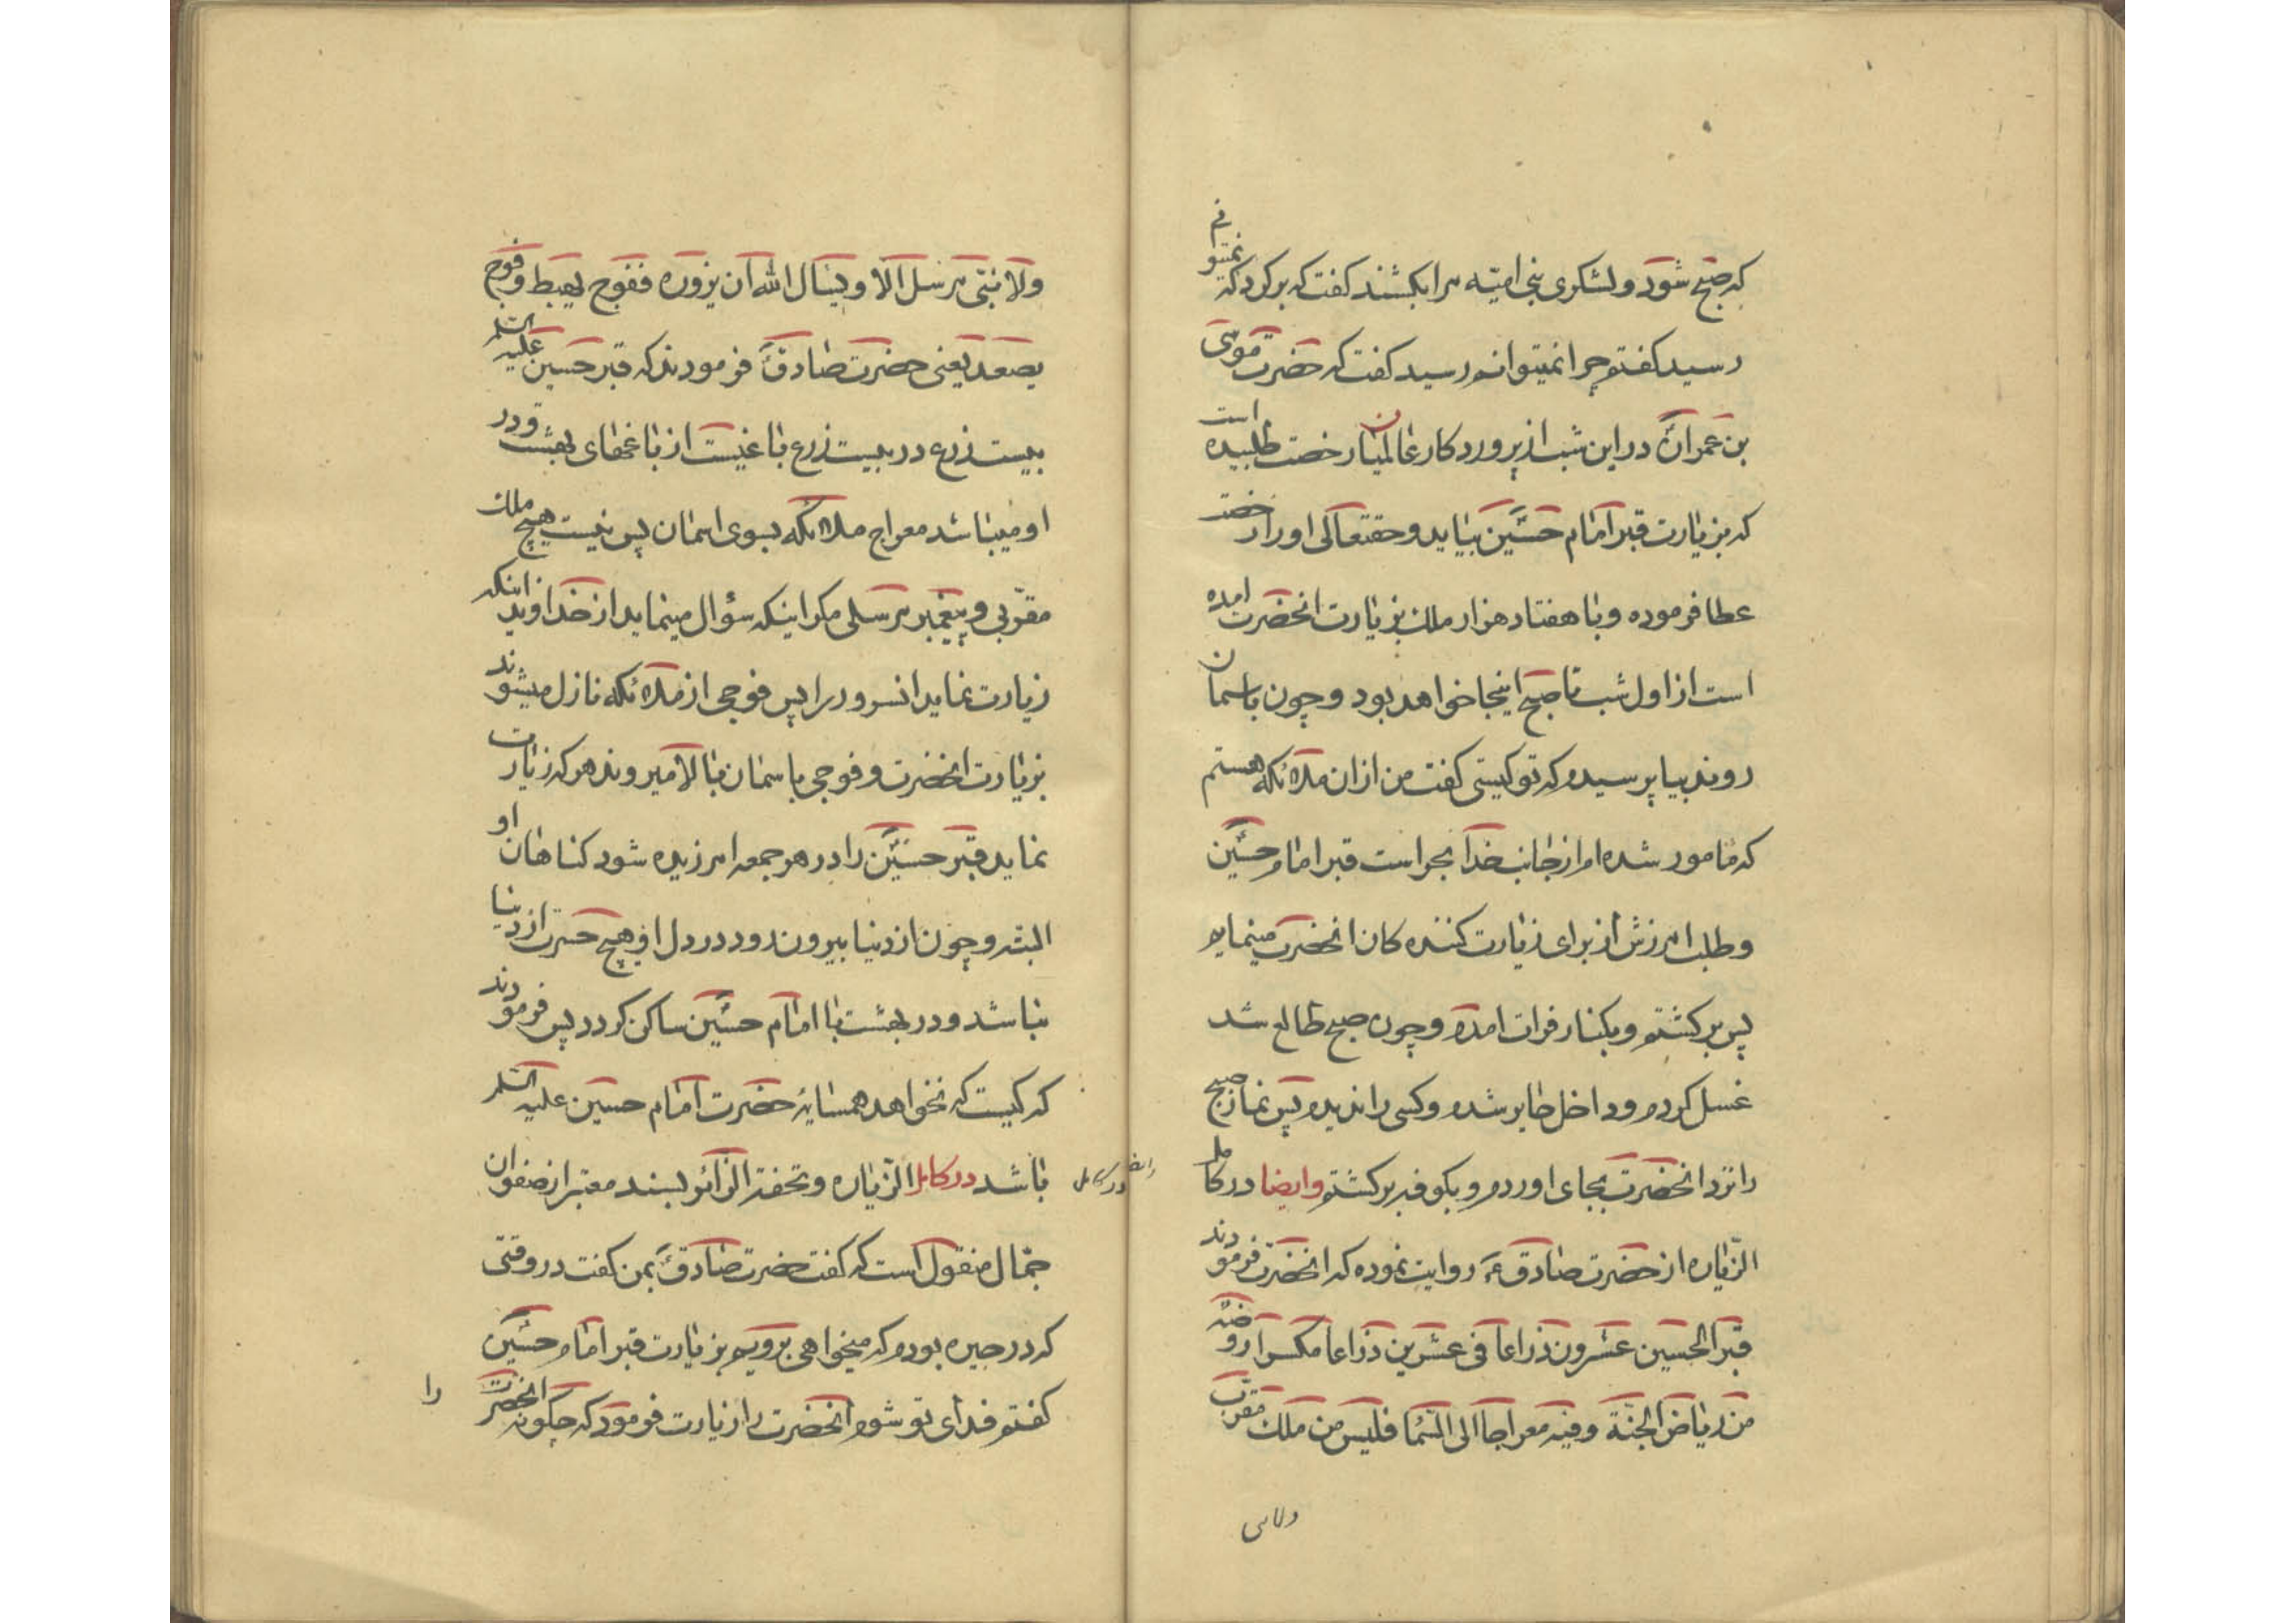 که صبح شود و لشکری بنی امیّه مرا بکشند کفت که برکرد که نمیتوانم
رسید کفتم چرا نمیتوانم رسید کفت که حضرت موسی
بن عمران در این شب از پروردکار عالمیان رخصت طلبیده است
که بزیارت قبر امام حسین بیاید و حقتعالی او را رخصت
عطا فرموده و با هفتاد هزار ملک بزیارت انحضرت امده
است از اول شب تا صبح اینجا خواهد بود و چون باسمان
روند بیا پرسیدم که تو کیستی کفت من از ان ملائکه هستم
که مامور شده ام از جانب خدا بحراست قبر امام حسین
و طلب امرزش از برای زیارت کننده کان انحضرت مینمایم
پس برکشتم و بکنار فرات امدم و چون صبح طالع شد
غسل کردم و داخل حایر شدم و کسی را ندیدم پس نماز صبح
را نزد انحضرت بجای اوردم و بکوفه برکشتم وایضا در کامل
الزّیاره از حضرت صادق ع روایت نموده که انحضرت فرمودند
قبر الحسین عشرون ذراعا فی عشرین ذراعا مکسرا روضة
من ریاض الجنّة و فیه معراجا الی السّما فلیس من ملک مقرّب
ولا نبی
ولا نبّی مرسل الا و یسال الله ان یزوره ففوج یهبط و فوج
یصعد یعنی حضرت صادقؑ فرمودند که قبر حسین علیه السلم
بیست ذرع در بیست ذرع باغیست از باغهای بهشت و در
او میباشد معراج ملائکه بسوی اسمان پس نیست هیچ ملک
مقرّبی و پیغمبر مرسلی مکر اینکه سؤال مینماید از خداوند اینکه
زیارت نماید انسرور را پس فوجی از ملائکه نازل میشوند
بزیارت انحضرت و فوجی باسمان بالا میروند هر که زیارت
نماید قبر حسین را در هر جمعه امرزیده شود کناهان او
البته و چون از دنیا بیرون رود در دل او هیچ حسرت از دنیا
نباشد و در بهشت با امام حسین ساکن کردد پس فرمودند
که کیست که نخواهد همسایهٔ حضرت امام حسین علیه السلم
باشد در کامل الزّیاره و تحفة الزّائر بسند معتبر از صفوان
ایضا در کامل
جمّال منقول است که کفت حضرت صادقؑ بمن کفت در وقتی
که در حیره بودم که میخواهی برویم بزیارت قبر امام حسین
کفتم فدای تو شوم انحضرت را زیارت فرمود که چکونه انحضرت
را